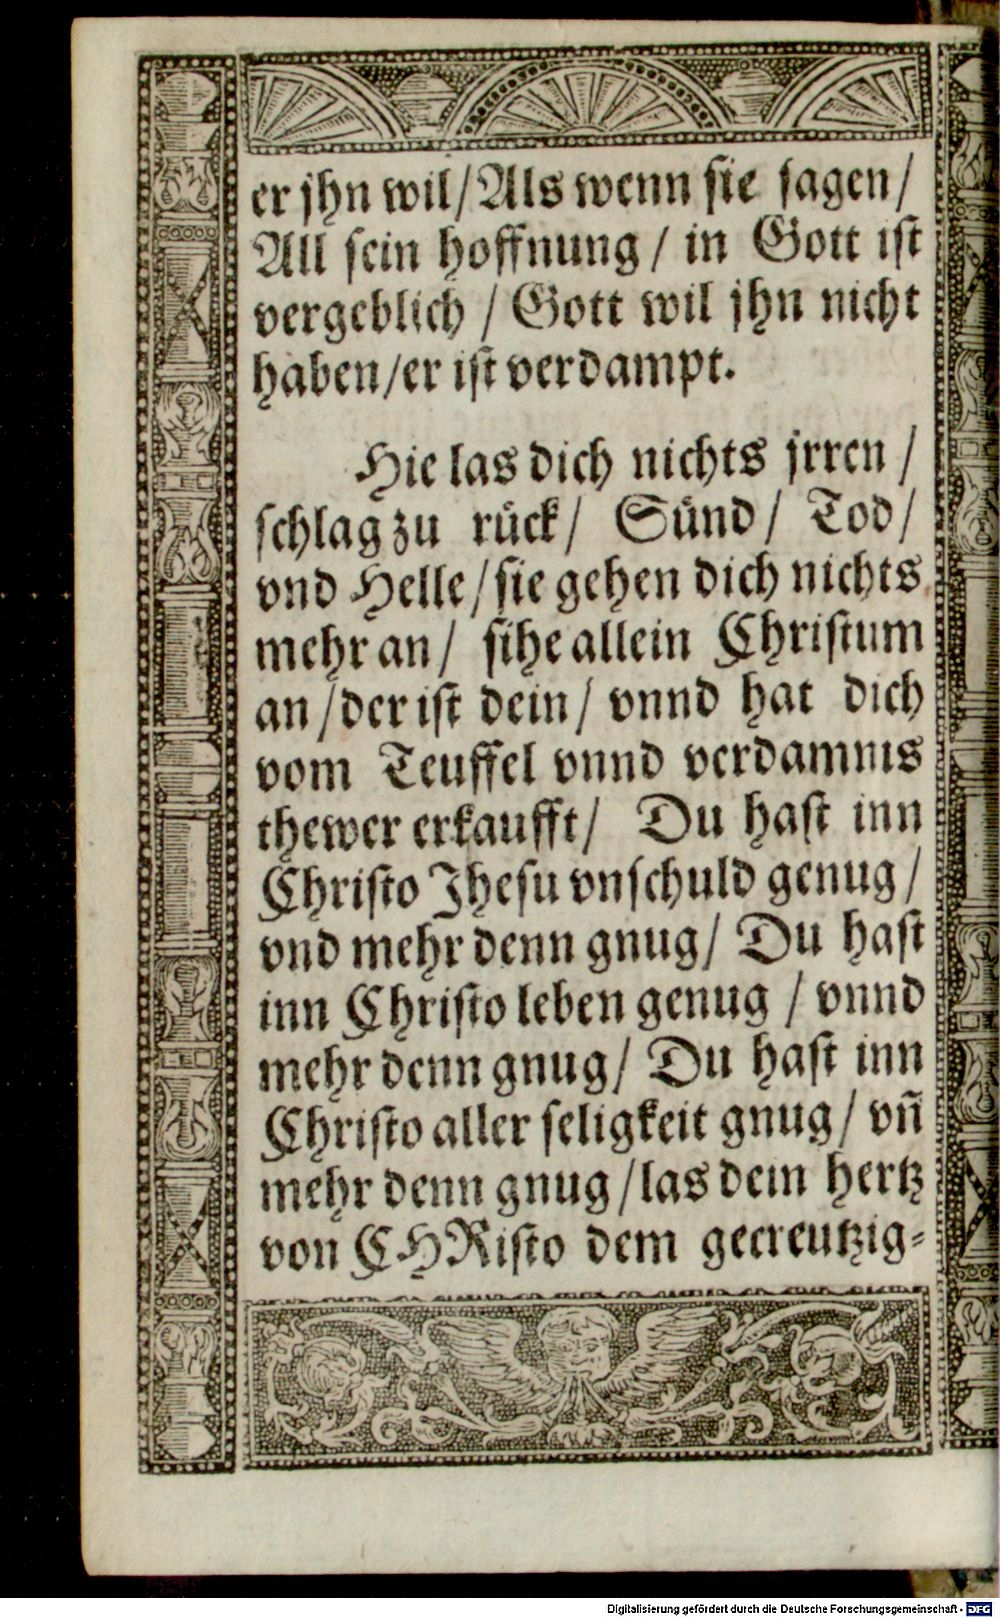 er jhn wil/Als wenn sie sagen/
All sein hoffnung / in Gott ist
vergeblich / Gott wil jhn nicht
haben/er ist verdampt.
Hie las dich nichts jrren /
schlag zu rück/ Sünd/ Tod/
vnd Helle/sie gehen dich nichts
mehr an/ sihe allein Christum
an/der ist dein/ vnnd hat dich
vom Teuffel vnnd verdamnis
thewer erkaufft/ Du hast inn
Christo Jhesu vnschuld genug/
vnd mehr denn gnug/ Du hast
inn Christo leben genug / vnnd
mehr denn gnug/ Du hast inn
Christo aller seligkeit gnug/ vñ
mehr denn gnug/las dein hertz
von CHRisto dem gecreutzig⸗
Digitalisierung gefördert durch die Deutsche Forschungsgemeinschaft - DFG